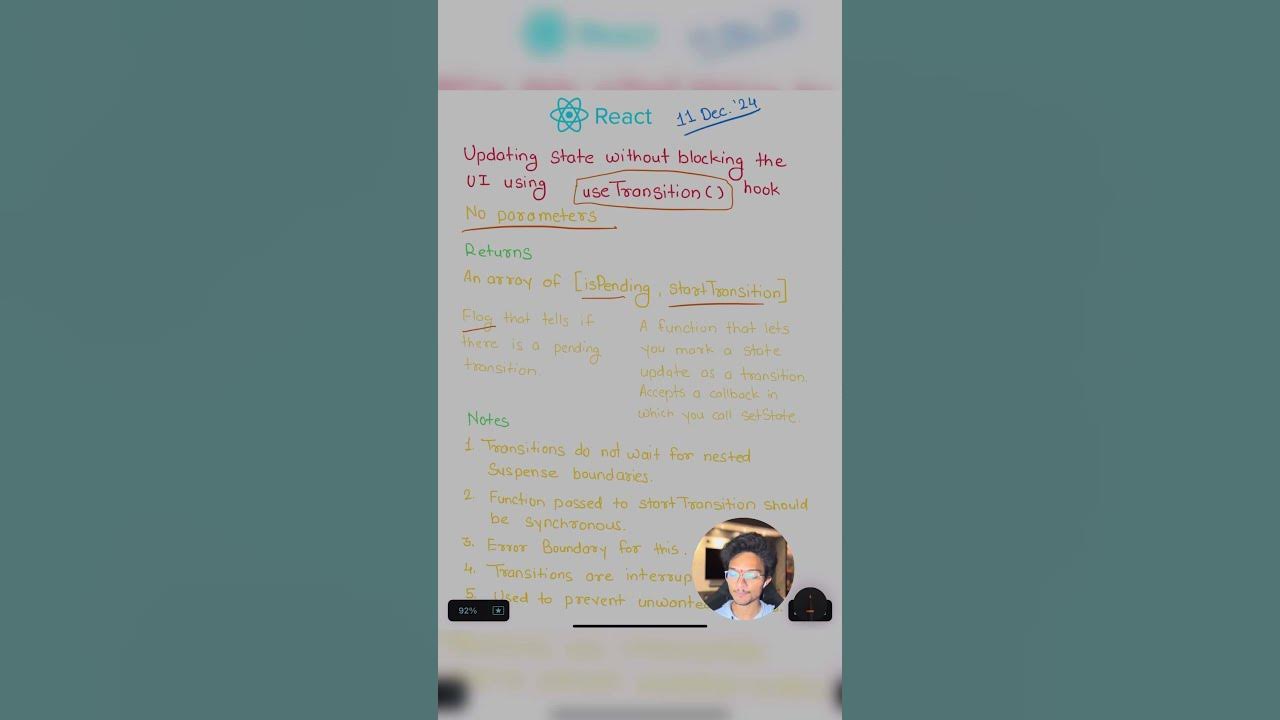 React
11 Dec. '24
Updating state without blocking the
UI using useTransition() hook
No parameters
Returns
An array of [isPending, startTransition]
Flag that tells if
there is a pending
transition.
A function that lets
you mark a state
update as a transition.
Accepts a callback in
which you call setState.
Notes
1. Transitions do not wait for nested
Suspense boundaries.
2. Function passed to startTransition should
be synchronous.
3. Error Boundary for this.
4. Transitions are interrup
5. Used to prevent unwante
92%